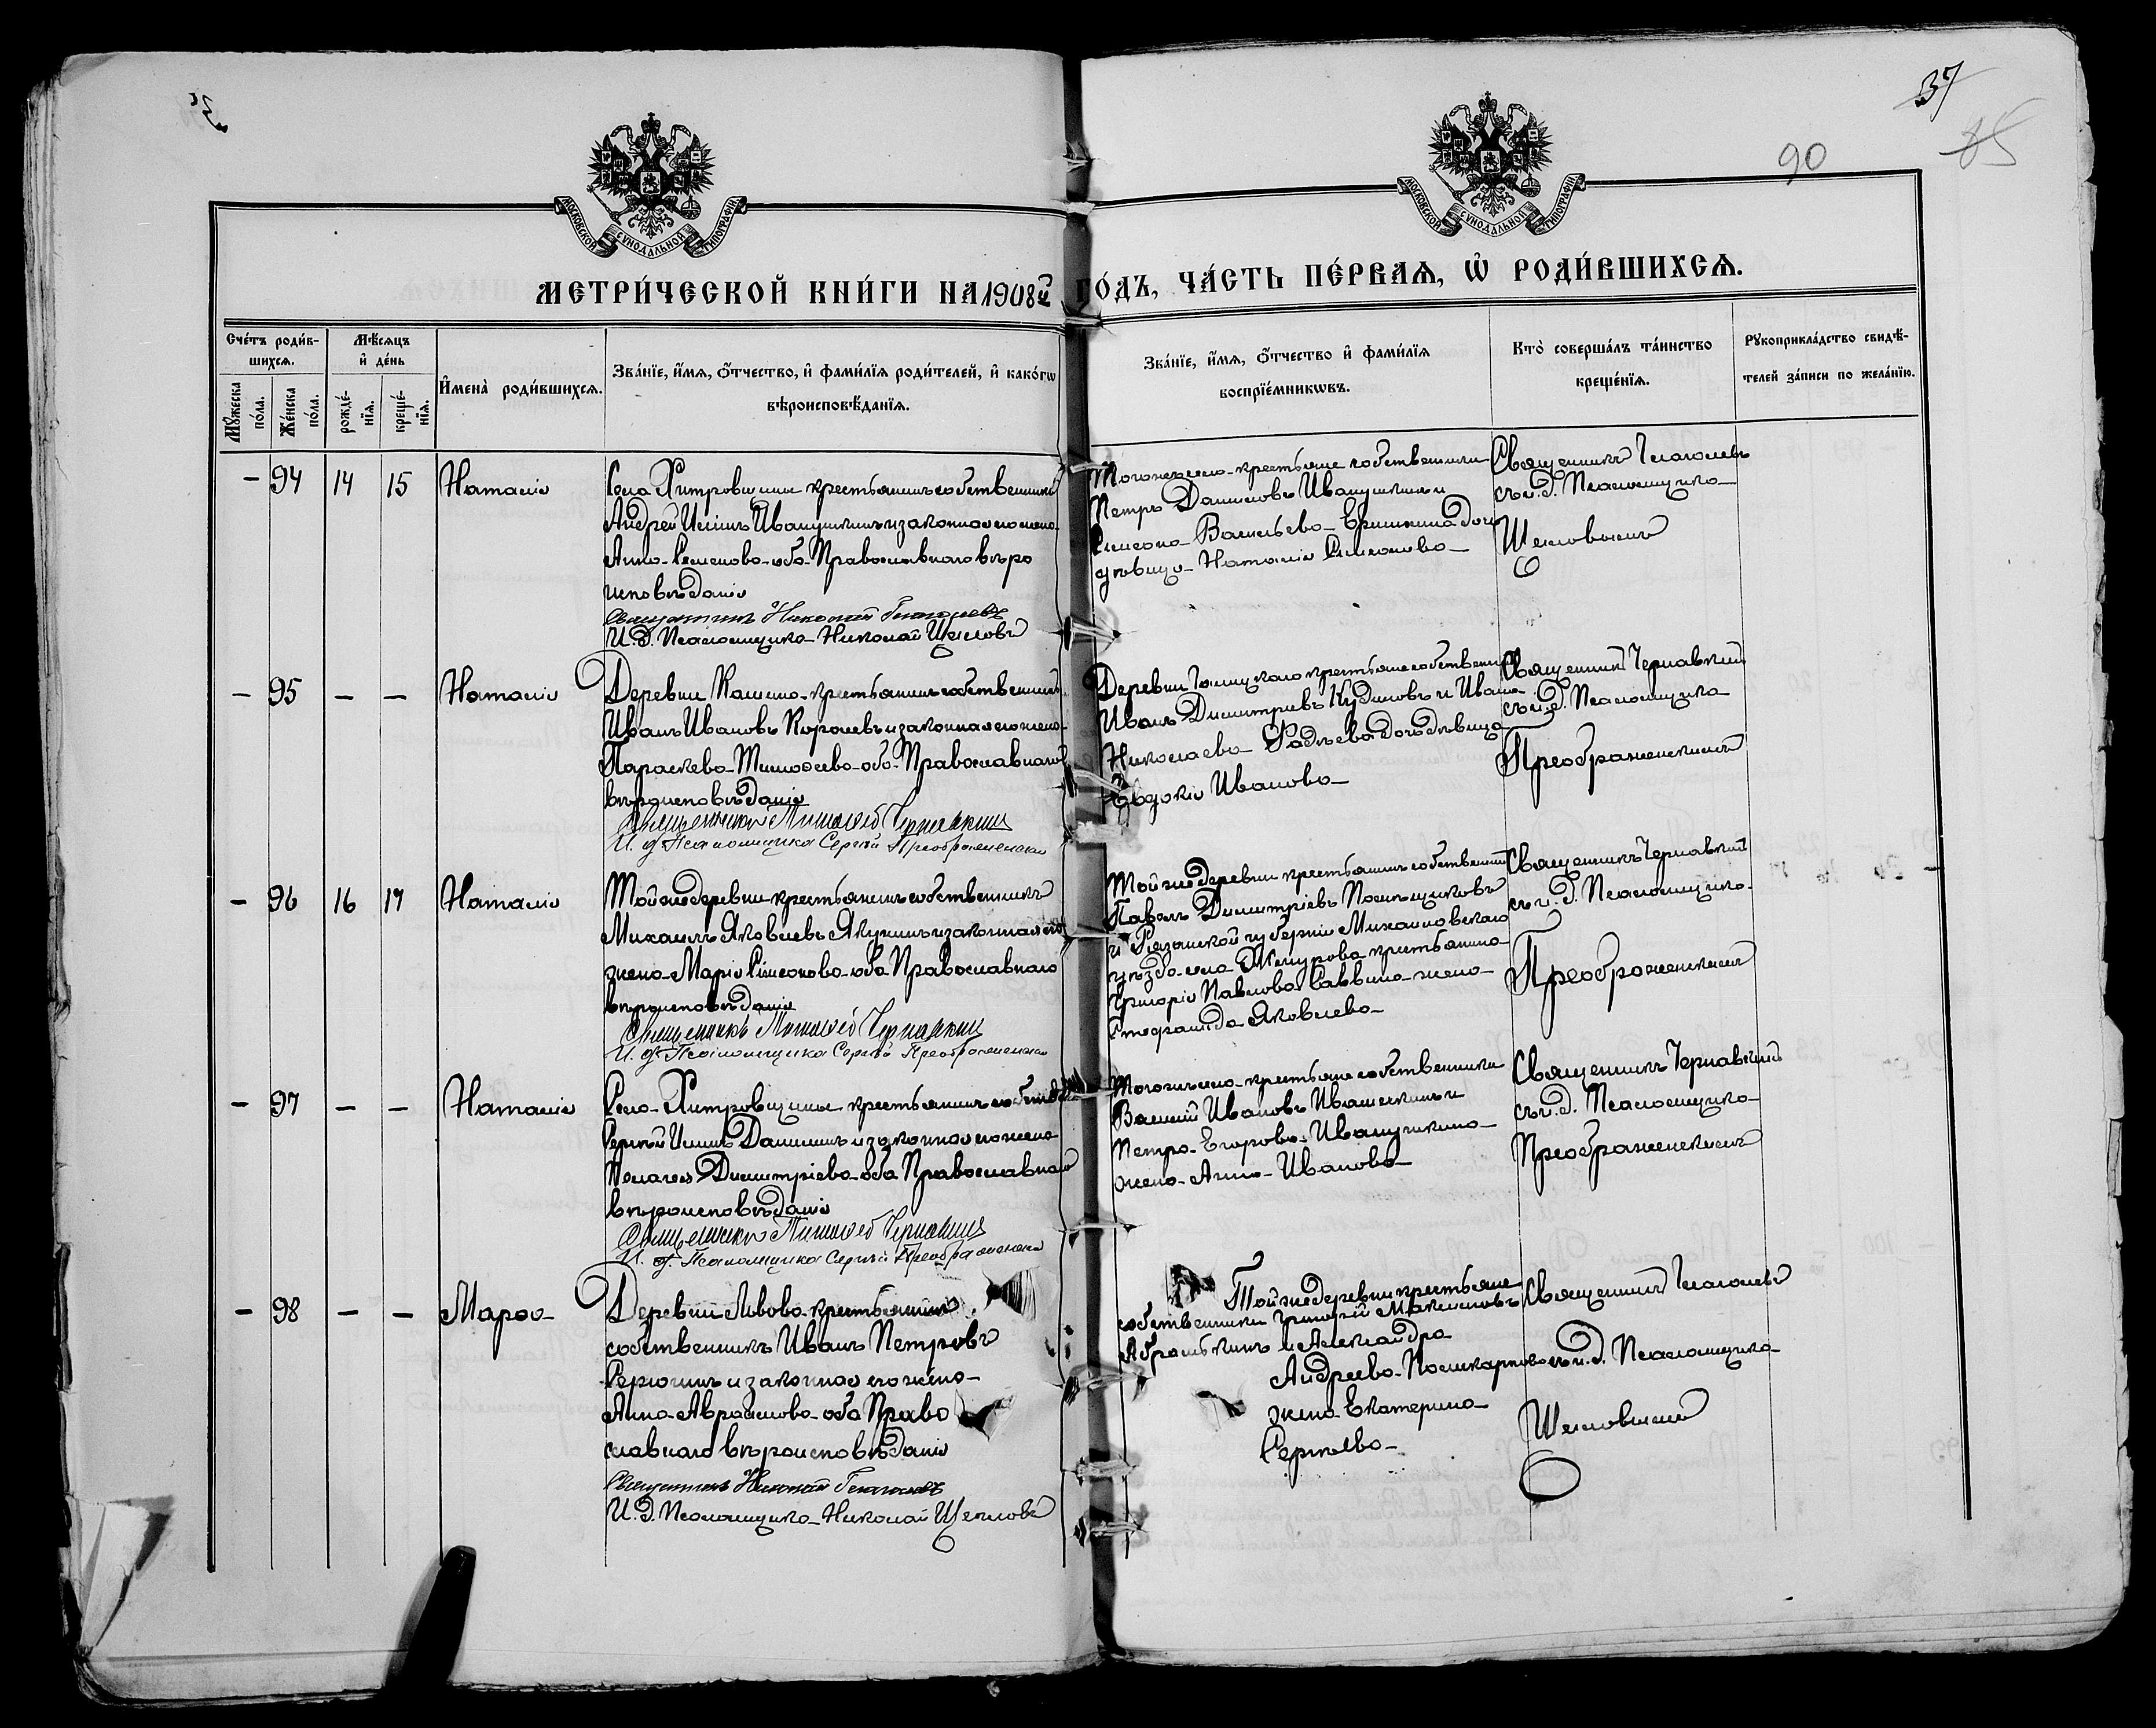 37
90
85
МОСКОВСКОЙ СѴНОДАЛЬНОЙ ТИПОГРАФІИ.
МОСКОВСКОЙ СѴНОДАЛЬНОЙ ТИПОГРАФІИ.
МЕТРИ́ЧЕСКОЙ КНИ́ГИ НА 1908й ГО́ДЪ, ЧА́СТЬ ПЕ́РВАѦ, Ѡ҆ РОДИ́ВШИХСѦ.
Сче́тъ роди́в-
шихсѧ.
Мꙋ́жеска по́ла.
Же́нска по́ла.
Мѣ́сѧцъ
и҆ де́нь
рожде́-
нїѧ.
креще́-
нїѧ.
И҆мена̀ роди́вшихсѧ.
Зва́нїе, и҆́мѧ, ѻ҆́тчество, и҆ фами́лїѧ роди́телей, и҆ како́гѡ
вѣроисповѣ́данїѧ.
Зва́нїе, и҆́мѧ, ѻ҆́тчество и҆ фами́лїѧ
воспрїе́мникѡвъ.
Кто̀ соверша́лъ та́инство
креще́нїѧ.
Рꙋкоприкла́дство свидѣ́-
телей за́писи по жела́нїю.
– 94 14 15 Наталія
Села Хитровщины крестьянинъ собственникъ
Андрей Ильинъ Иванушкинъ и законная его жена
Анна Семенова оба Православнаго вѣро
исповѣданія
Священникъ Николай Глаголевъ
И. Д. Псаломщика Николай Щегловъ
Того же села крестьяне собственники
Петръ Даниловъ Иванушкинъ и
Симеона Васильева Еришкина дочь
дѣвица Наталія Симеонова
Священникъ Глаголевъ
съ и. д. Псаломщика
Щегловымъ
– 95 – – Наталія
Деревни Кашино крестьянинъ собственникъ
Иванъ Ивановъ Королевъ и законная его жена
Параскева Тимоѳеева оба Православнаго
вѣроисповѣданія
Священникъ Тимоѳей Чернавкинъ
И. д. Псаломщика Сергѣй Преображенскій
Иванъ Димитріевъ Кудиновъ и Ивана
Николаева Фадѣева дочь дѣвица
Евдокія Иванова
Священникъ Чернавкинъ
съ и. д. Псаломщика
Преображенскимъ
– 96 16 17 Наталія
Той же деревни крестьянинъ собственникъ
Михаилъ Яковлевъ Якунинъ и законная его
жена Марія Симеонова оба Православнаго
вѣроисповѣданія
Священникъ Тимоѳей Чернавкинъ
И. д. Псаломщика Сергѣй Преображенскій
Той же деревни крестьянинъ собственникъ
Павелъ Димитріевъ
и Рязанской губерніи Михайловскаго
уѣзда села крестьянина
Григорія Павлова Саввина жена
Степанида Яковлева
Священникъ Чернавкинъ
съ и. д. Псаломщика
Преображенскимъ
– 97 – – Наталія
Села Хитровщины крестьянинъ собственникъ
Сергѣй Ильинъ Данилинъ и законная его жена
Пелагея Димитріева оба Православнаго
вѣроисповѣданія
Священникъ Тимоѳей Чернавкинъ
И. д. Псаломщика Сергѣй Преображенскій
Того же села крестьяне собственники
Василій Ивановъ Ивашкинъ и
Петра Егорова Иванушкина
жена Анна Иванова
Священникъ Чернавкинъ
съ и. д. Псаломщика
Преображенскимъ
– 98 – – Марѳа
Деревни Львова крестьянинъ
собственникъ Иванъ Петровъ
Серюгинъ и законная его жена
Анна Авраамова оба Право
славнаго вѣроисповѣданія
Священникъ Николай Глаголевъ
И. Д. Псаломщика Николай Щегловъ
Той же деревни крестьяне
собственники Григорій Максимовъ
Абрашкинъ и Александра
Андреева
жена Екатерина
Сергѣева
Священникъ Глаголевъ
съ и. д. Псаломщика
Щегловымъ